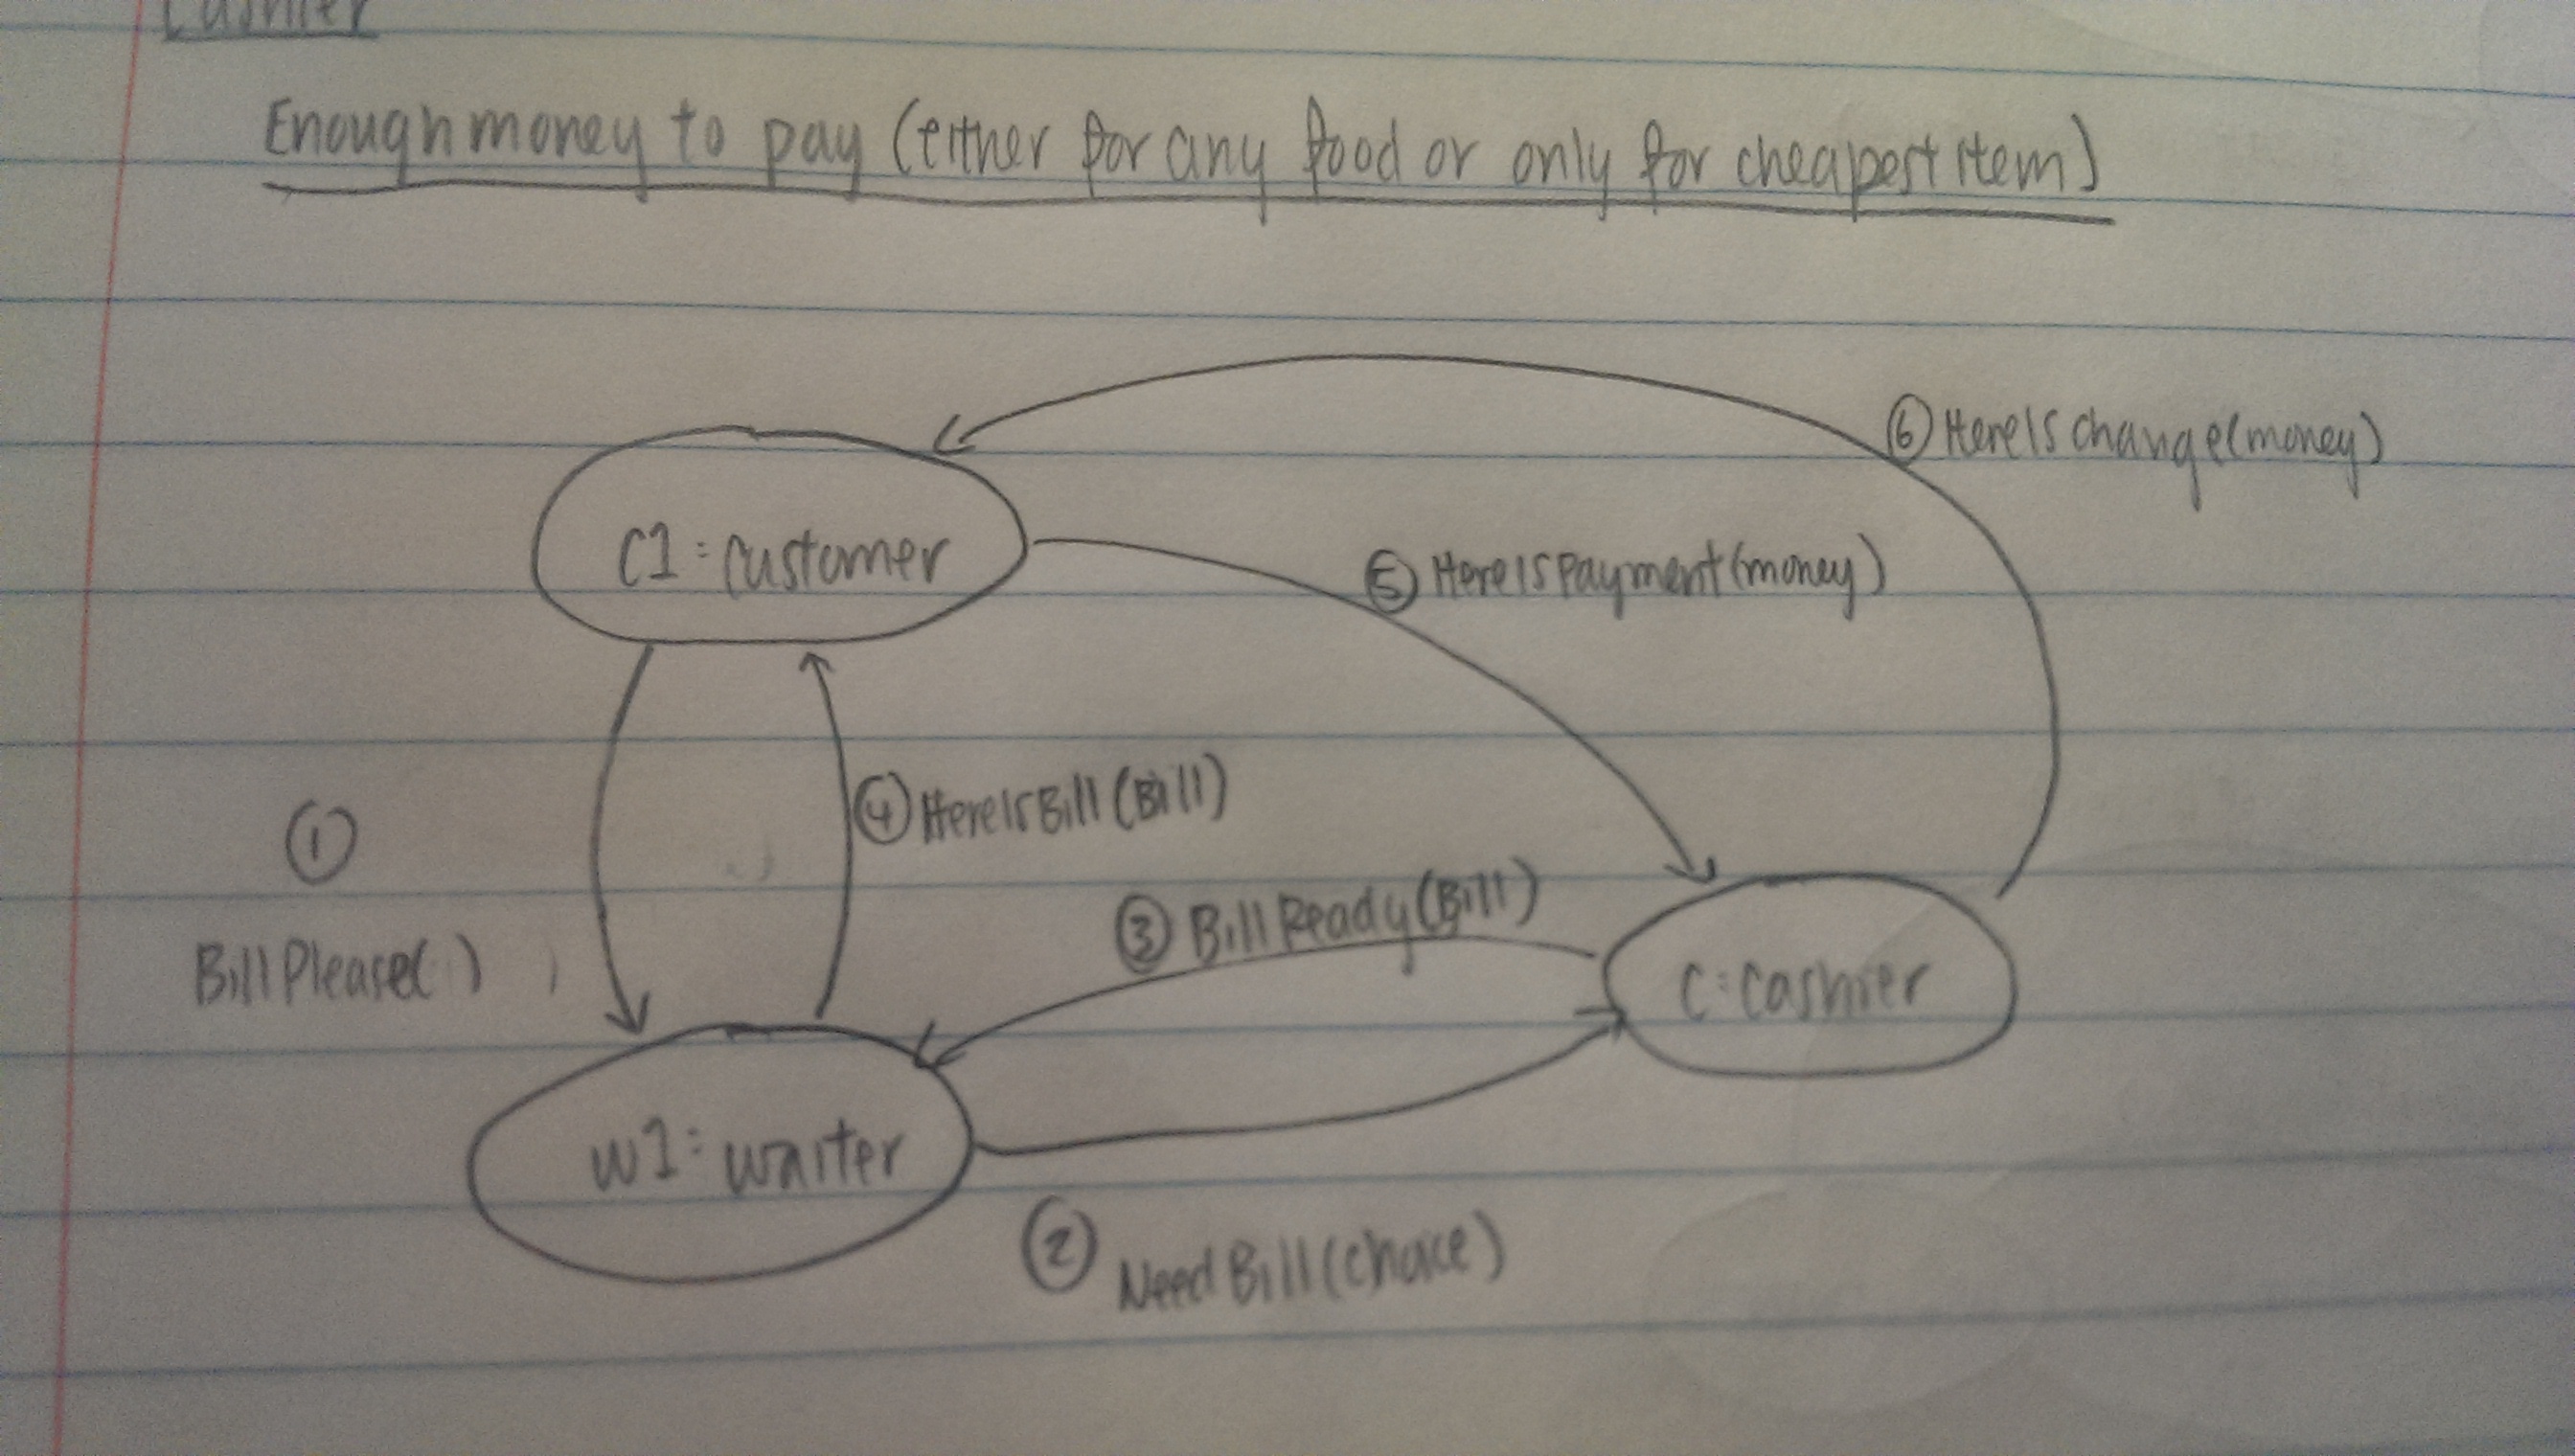 Cashier
Enough money to pay (either for any food or only for cheapest item)
⑥ HereIsChange(money)
C1: customer
⑤ HereIsPayment(money)
④ HereIsBill(Bill)
①
BillPlease( )
③ BillReady(Bill)
C: cashier
W1: waiter
② NeedBill(choice)